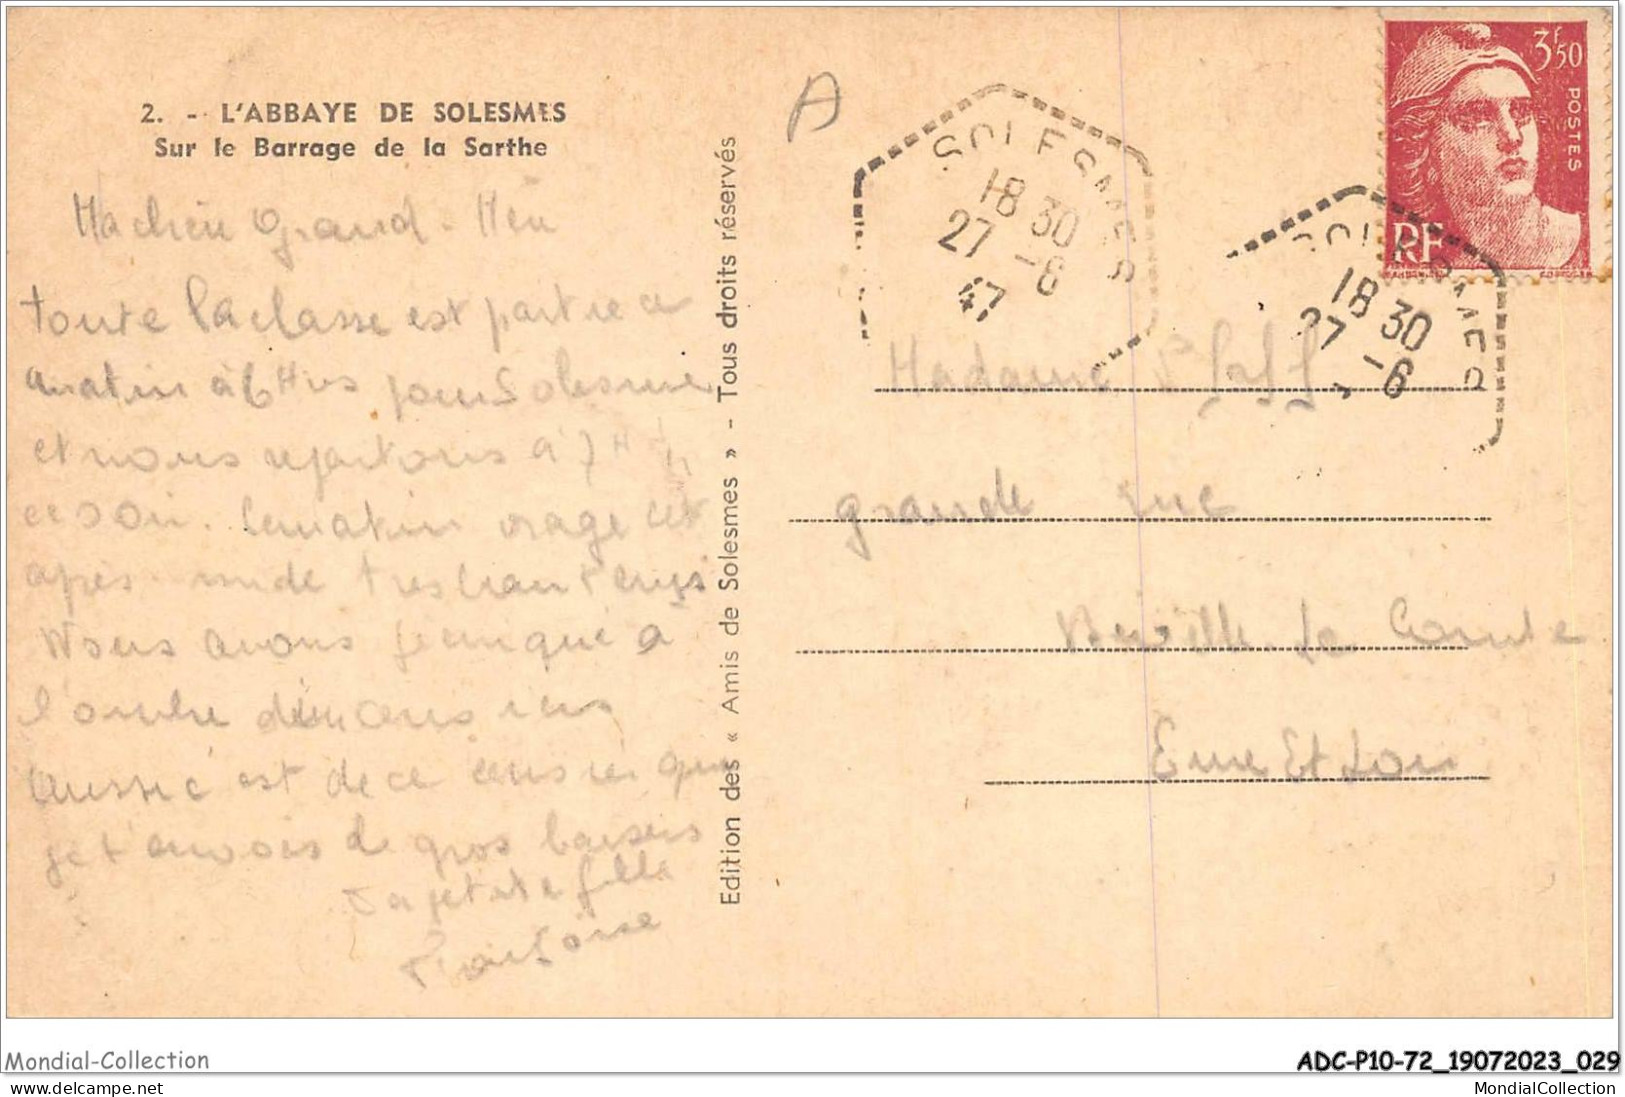 2. - L'ABBAYE DE SOLESMES
Sur le Barrage de la Sarthe
Ma chère Grand-Mèn
toute la classe est partie ce
matin à 6 Hrs pour Solesme
et nous repartons à 7 H 1/2
ce soir. Ce matin orage et
après-midi très beau temps
Nous avons pique niqué à
l'ombre
aussi c'est de ce que
je t'envois de gros baisers
Ta petite fille
Françoise
Edition des « Amis de Solesmes » - Tous droits réservés
A
SOLESMES
18 30
27 -6
47
SOLESMES
18 30
27 -6
3F50
POSTES
RF
Madame
grande rue
Béville-le Comte
Eure Et Loir
Mondial-Collection
ADC-P10-72_19072023_029
MondialCollection